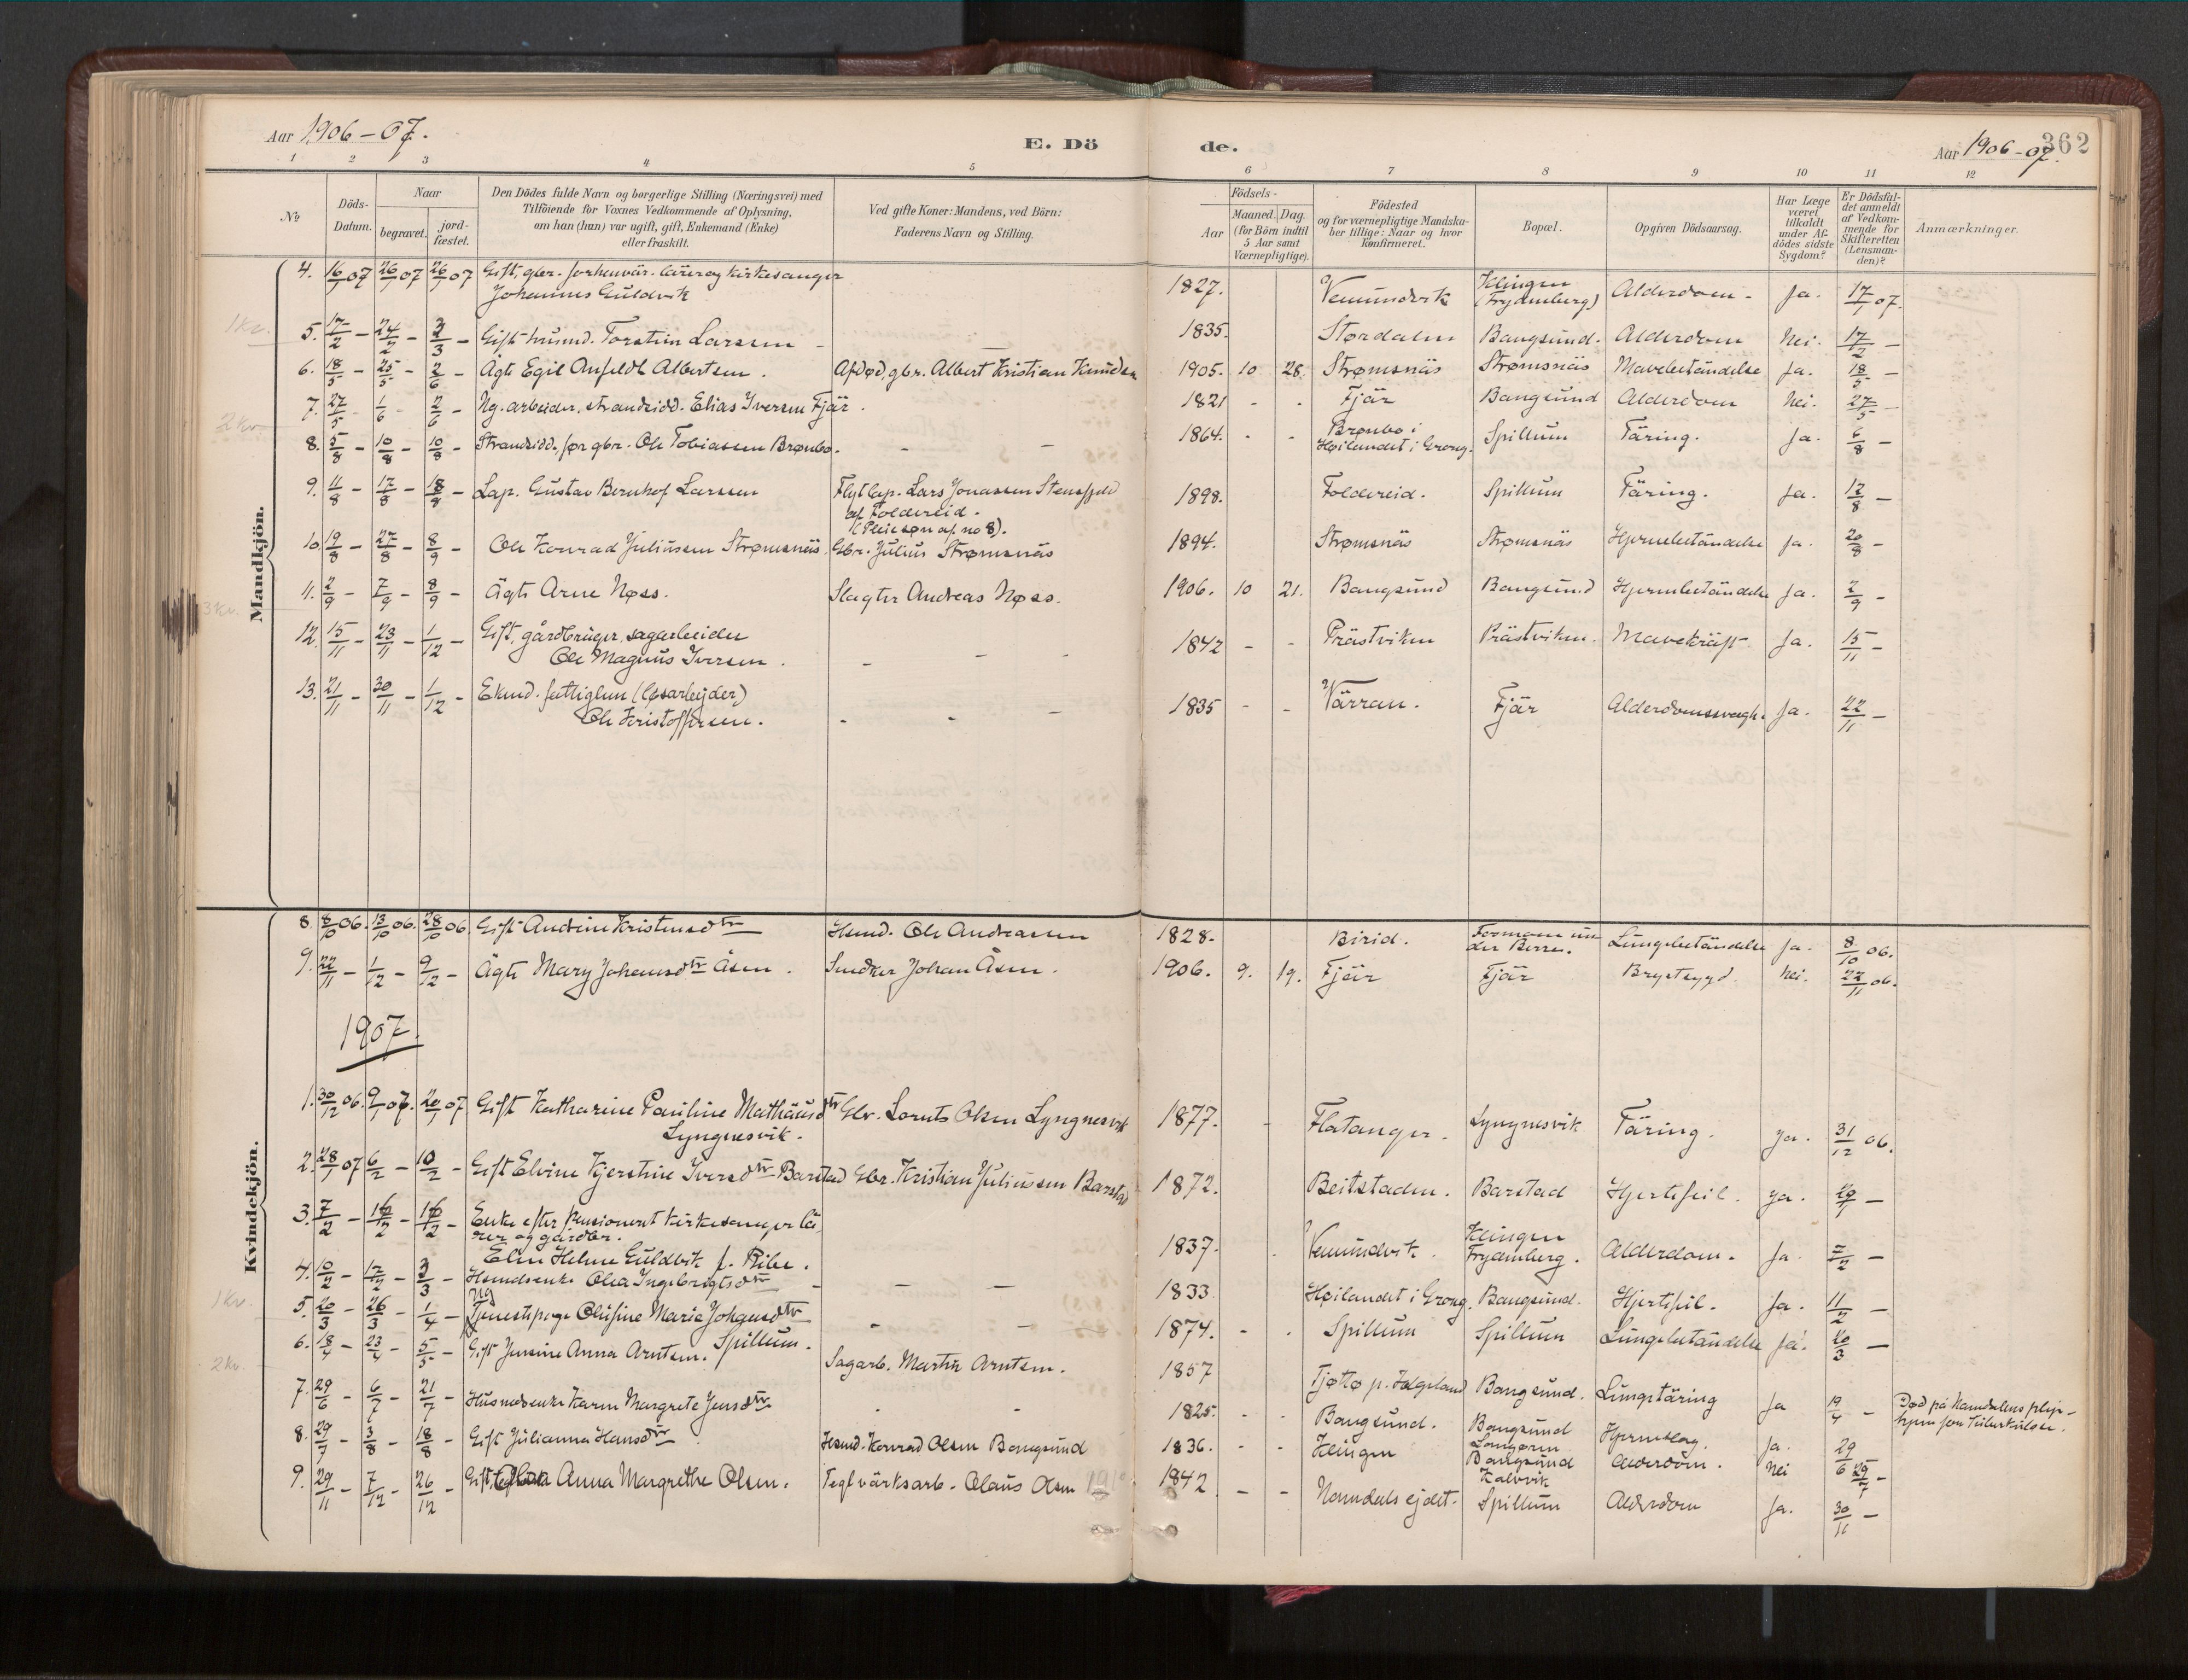 Aar 1906-07.
E. Dö
de.
Aar 1906-07.
362
1 2 3 4 5 6 7 8 9 10 11 12
№
Döds-Datum.
Naar
begravet.
jordfæstet.
Den Dödes fulde Navn og borgerlige Stilling (Næringsvei) med
Tilföiende for Voxnes Vedkommende af Oplysning,
om han (hun) var ugift, gift, Enkemand (Enke)
eller fraskilt.
Ved gifte Koner: Mandens, ved Börn:
Faderens Navn og Stilling.
Födsels-
Aar
Maaned. Dag.
(for Börn indtil
5 Aar samt
Værnepligtige).
Födested
og for værnepligtige Mandskaber tillige: Naar og hvor
Konfirmeret.
Bopæl.
Opgiven Dödsaarsag.
Har Læge
været
tilkaldt
under Afdödes sidste
Sygdom?
Er Dödsfaldet anmeldt
af Vedkommende for
Skifteretten
(Lensmanden)?
Anmærkninger.
Mandkjön.
4. 16/1 07 26/1 07 26/1 07 Gift, gbr. forhenvär. lärer og kirkesanger
Johannes Guldvik 1827. Vemundvik Klingen (Frydenberg) Alderdom - Ja. 17/1 07.
1 kv.
5. 17/2 - 24/2 - 3/3 - Gift husmd. Torstein Larssen - 1835. Størdalen Bangsund. Alderdom Nei. 17/2 -
6. 18/5 - 25/5 - 2/6 - Ägte Egil Anfeldt Albertsen. Afdød gbr. Albert Kristian Knudsen 1905. 10 28. Strømsnäs Strømsnäs Mavebetändelse Ja. 18/5 -
2 kv
7. 27/5 1/6 - 2/6 - Ug. arbeider, strandsidd. Elias Iversen Fjär. 1821 - - Fjär Bangsund Alderdom Nei. 27/5 -
8. 5/8 - 10/8 - 10/8 - Strandsidd. før gbr. Ole Tobiassen Brønbo. - - 1864. - - Brønbo i Høilandet i Grong. Spillum Täring. Ja. 6/8 -
9. 11/8 - 17/8 - 18/8 - Lap. Gustav Bernhof Larssen Flytlap. Lars Jonassen Stensfjeld
af Foldereid.
(Pleiesøn af no 8). 1898. Foldereid. Spillum Täring. Ja. 12/8 -
10. 19/8 - 27/8 - 8/9 - Ole Konrad Juliussen Strømsnäs. Gbr. Julius Strømsnäs 1894. Strømsnäs Strømsnäs Hjernebetändelse Ja. 20/8 -
3 kv.
11. 2/9 - 7/9 - 8/9 - Ägte Arne Nøss. Slagter Andreas Nøss. 1906. 10 21. Bangsund Bangsund Hjernebetändelse Ja. 2/9 -
12. 15/11 - 23/11 - 1/12 - Gift, gårdbruger, sagarbeider
Ole Magnus Iversen. - - - 1842 - - Prästviken Prästviken. Mavekräft Ja. 15/11 -
13. 21/11 - 30/11 - 1/12 - Ekmd. fattiglem (løsarbejder)
Ole Kristoffersen. - - - 1835 - - Värran. Fjär Alderdomssvagh. Ja. 22/11 -
Kvindekjön.
8. 8/10 06. 13/10 06. 28/10 06. Gift Andrine Kristensdtr Hsmd. Ole Andreassen 1828. Birid. Lungebetändelse Ja. 8/10 06.
9. 22/11 - 1/12 - 9/12 - Ägte Mary Johansdtr Åsen. Snedker Johan Åsen. 1906. 9. 19. Fjär Fjär Brystsygd. Nei. 22/11 06.
1907.
1. 30/12 06. 9/1 07. 20/1 07 Gift Katharine Pauline Mathäusdtr
Lyngnesvik. Gbr. Lornts Olsen Lyngnesvik 1877. - Flatanger. Lyngnesvik Täring. ja. 31/12 06.
2. 28/1 07 6/2 - 10/2 - Gift Elvine Kjerstine Iversdtr Barstad Gbr. Kristian Juliussen Barstad 1872. Beitstaden. Barstad Hjertefeil. ja. 29/1 -
3. 7/2 - 16/2 - 16/2 - Enke efter pensioneret kirkesanger lä-
rer og gårdbr.
Elen Helene Guldvik f. Ribe. 1837. Vemundvik. Klingen Frydenberg. Alderdom. Ja. 7/2 -
4. 10/2 - 17/2 - 3/3 - Hsmdsenke Olea Ingebrigtsdtr - - - 1833 Høilandet i Grong. Bangsund. Hjertefeil. Ja. 11/2 -
1 kv.
5. 20/3 - 26/3 - 1/4 - Ug Tjenestepige Olufine Marie Johansdtr
Spillum. - - 1874. - - Spillum Spillum Lungebetändelse Ja. 20/3 -
2 kv.
6. 18/4 - 23/4 - 5/5 - Gift Jensine Anna Arntsen. Sagarb. Martin Arntsen. 1857 Tjøttø p. Helgeland Bangsund. Lungetäring Ja 19/4 - Død på Namdalens pleje-
hjem for Tuberkuløse.
7. 29/6 - 6/7 - 21/7 - Husmdsenke Karen Margrete Jensdtr - - 1825. - - Bangsund. Bangsund Hjerneslag. Ja. 29/6
8. 29/7 - 3/8 - 18/8 - Gift Julianna Hansdtr Hsmd. Konrad Olsen Bangsund 1836. - - Klingen Bangsund Alderdom. Nei 29/7 -
9. 29/11 - 7/12 - 26/12 - Gift Anna Margrethe Olsen. Teglvärksarb. Olaus Olsen 1842 - - Namdalsejdet. Kalvvik Spillum Alderdom Ja. 30/11 -